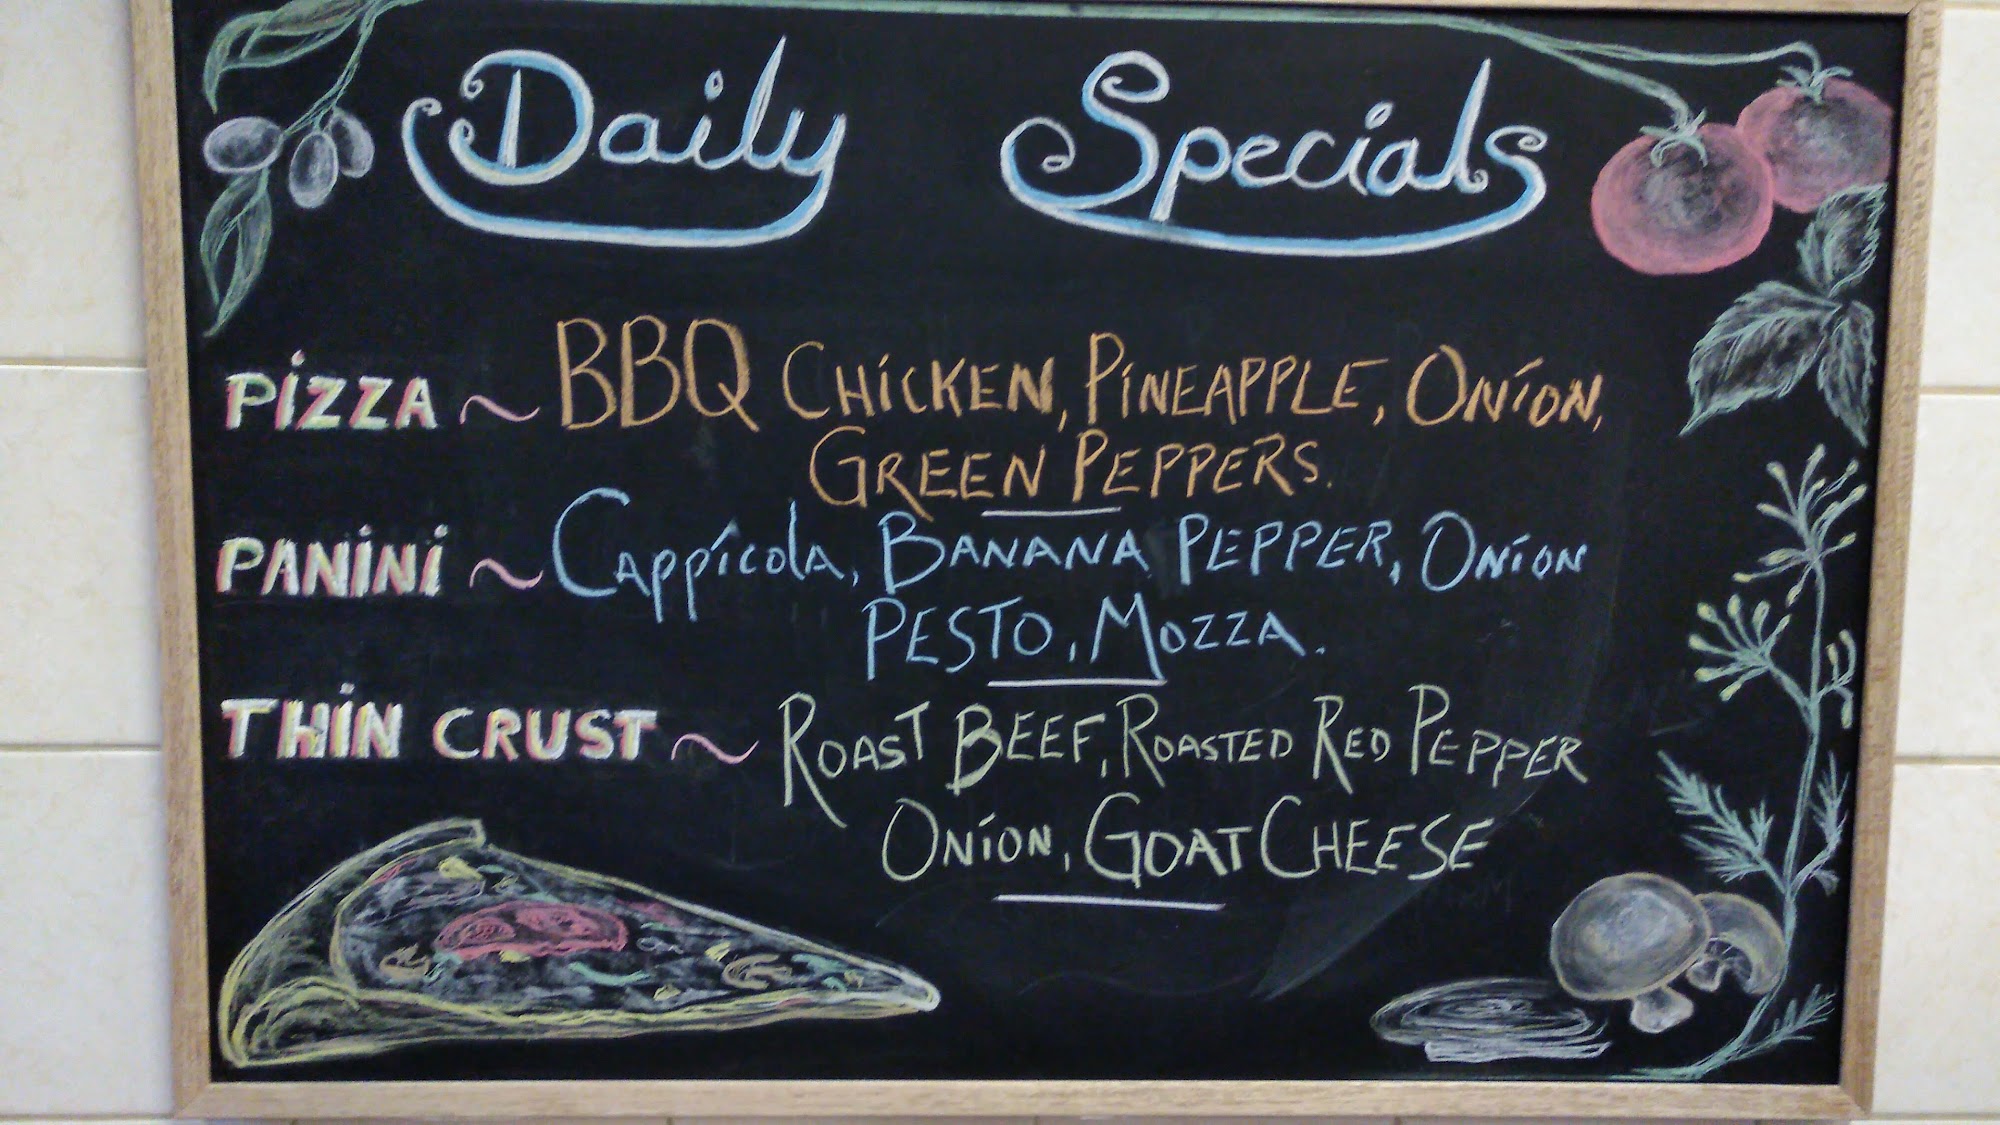 Daily Specials
PIZZA ~ BBQ CHICKEN, PINEAPPLE, ONION,
GREEN PEPPERS.
PANINI ~ CAPPICOLA, BANANA PEPPER, ONION
PESTO, MOZZA.
THIN CRUST ~ ROAST BEEF, ROASTED RED PEPPER
ONION, GOAT CHEESE